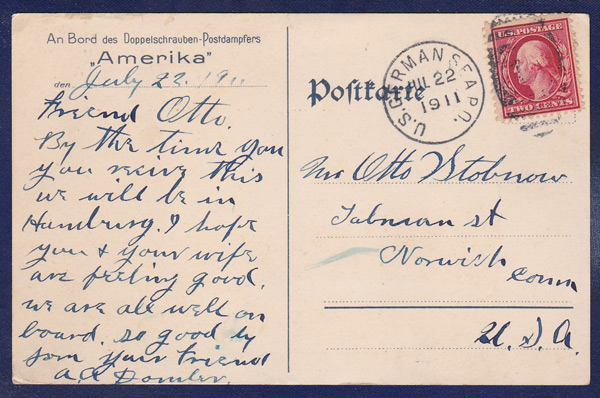 An Bord des Doppelschrauben-Postdampfers
„Amerika"
den July 22. 1911
Freend Otto.
By the time you
you recive this
we will be in
Hamburg. I hope
you & your wife
are feeling good.
we are all well on
board. so good by
from your Friend
Postkarte
U.S. GERMAN SEA P.O.
JUL 22
1911
U.S. POSTAGE
TWO CENTS
Mr Otto Stobnow
Talman st
Norwich
Conn
U. S. A.